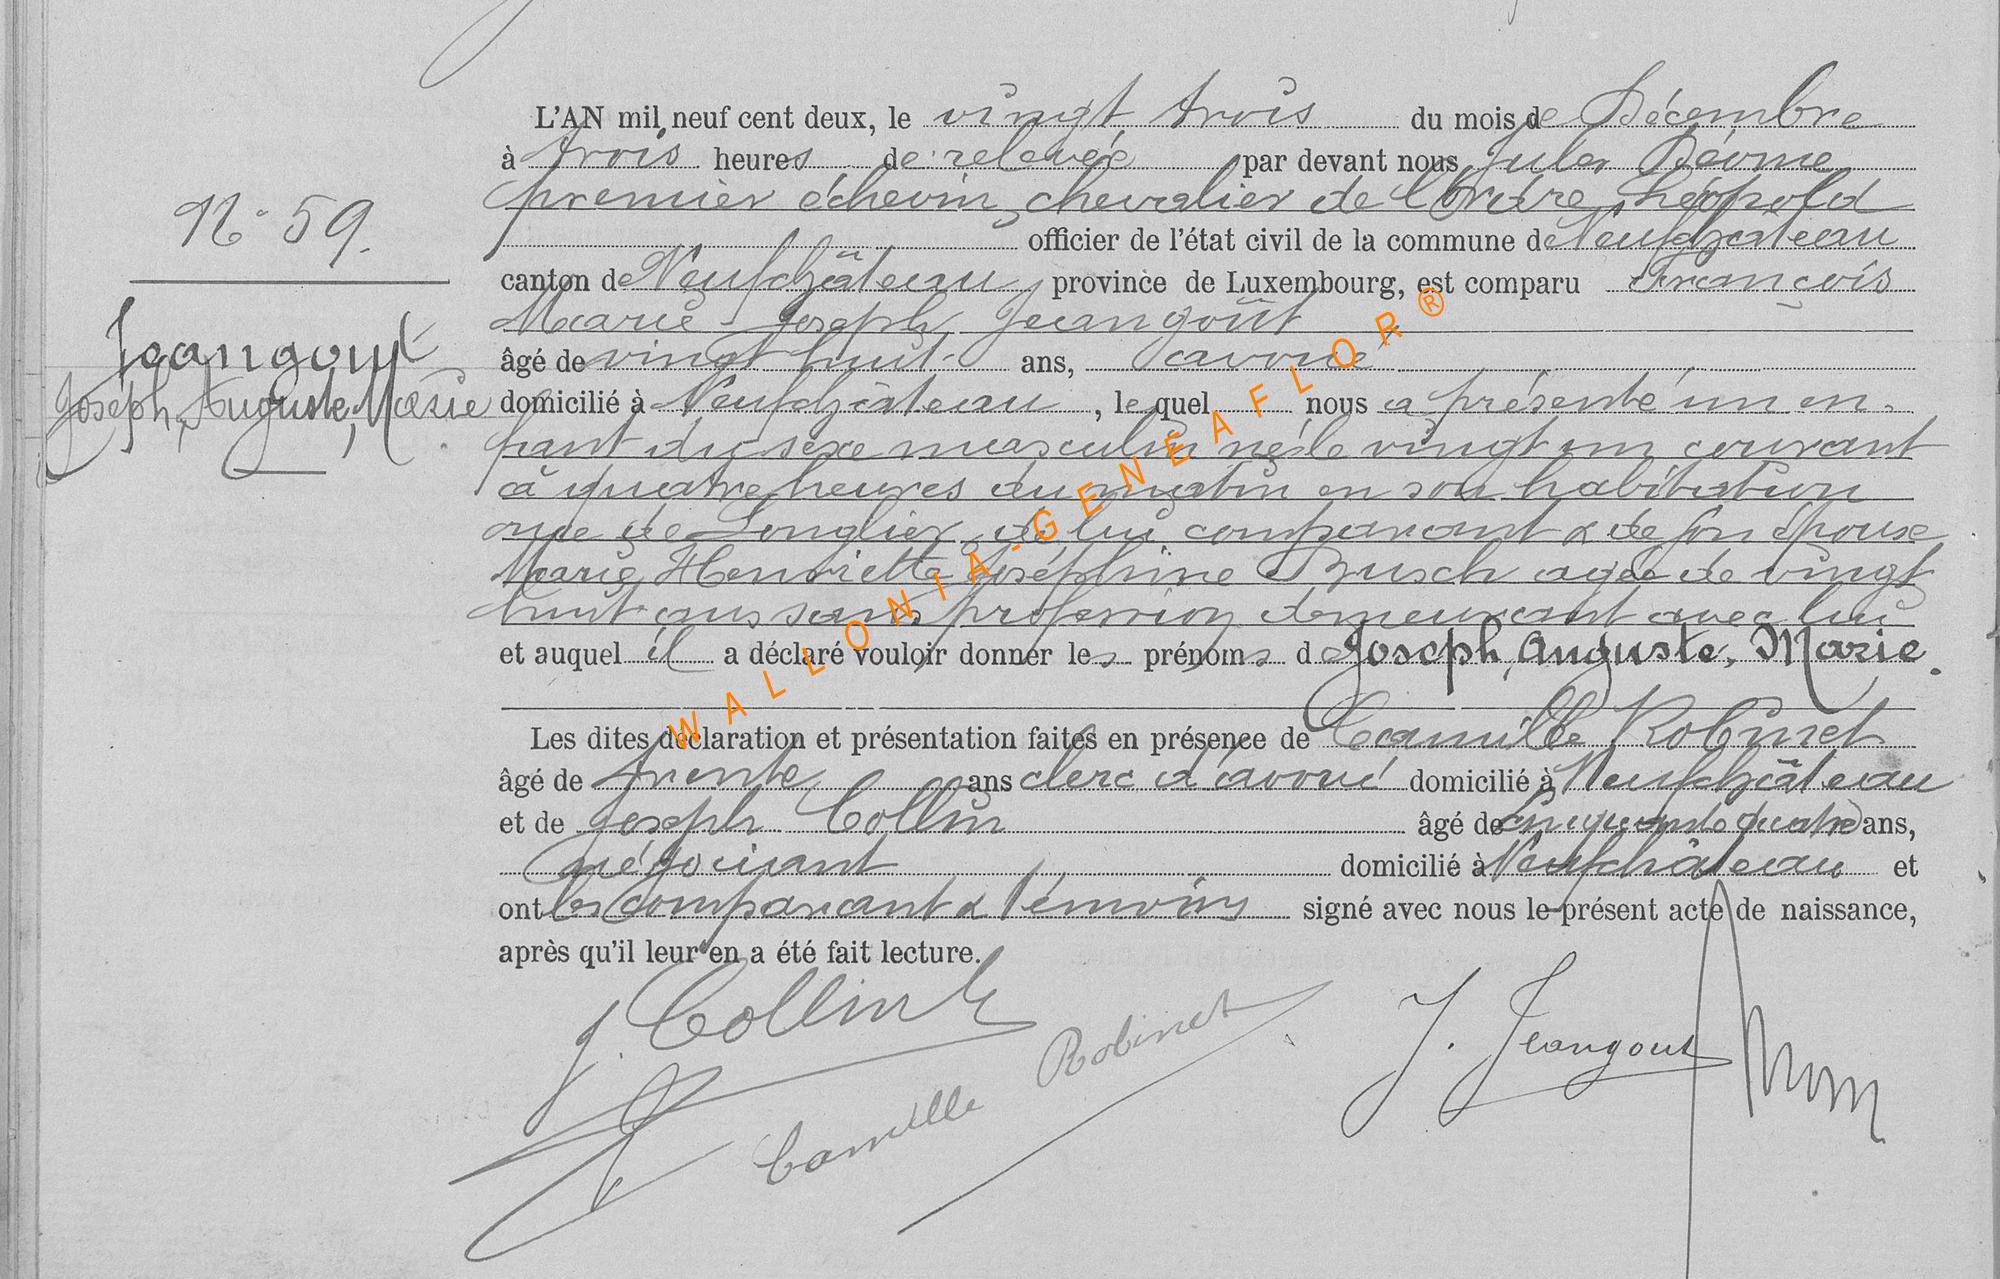 L'AN mil neuf cent deux, le vingt trois du mois de Décembre
à trois heures de relevée par devant nous Jules
premier échevin, chevalier de l'Ordre Léopold
officier de l'état civil de la commune de Neufchâteau
N° 59.
canton de Neufchâteau, province de Luxembourg, est comparu François
Marie Joseph Jeangoût
Jeangout
âgé de vingt huit ans, avoué
Joseph, Auguste, Marie
domicilié à Neufchâteau, le quel nous a présenté un en-
fant du sexe masculin né le vingt un courant
à quatre heures du matin en son habitation
rue de Longlier, de lui comparant & de son épouse
Marie Henriette Joséphine Busch agée de vingt
huit ans sans profession demeurant avec lui
et auquel il a déclaré vouloir donner les prénoms de Joseph, Auguste, Marie.
Les dites déclaration et présentation faites en présence de Camille Robinet
âgé de trente ans clerc d'avoué domicilié à Neufchâteau
et de Joseph Collin âgé de cinquante quatre ans,
négociant domicilié à Neufchâteau et
ont les comparant & témoins signé avec nous le présent acte de naissance,
après qu'il leur en a été fait lecture.
J. Collin
Camille Robinet
J. Jeangout
WALLONIA-GENEAFLOR®